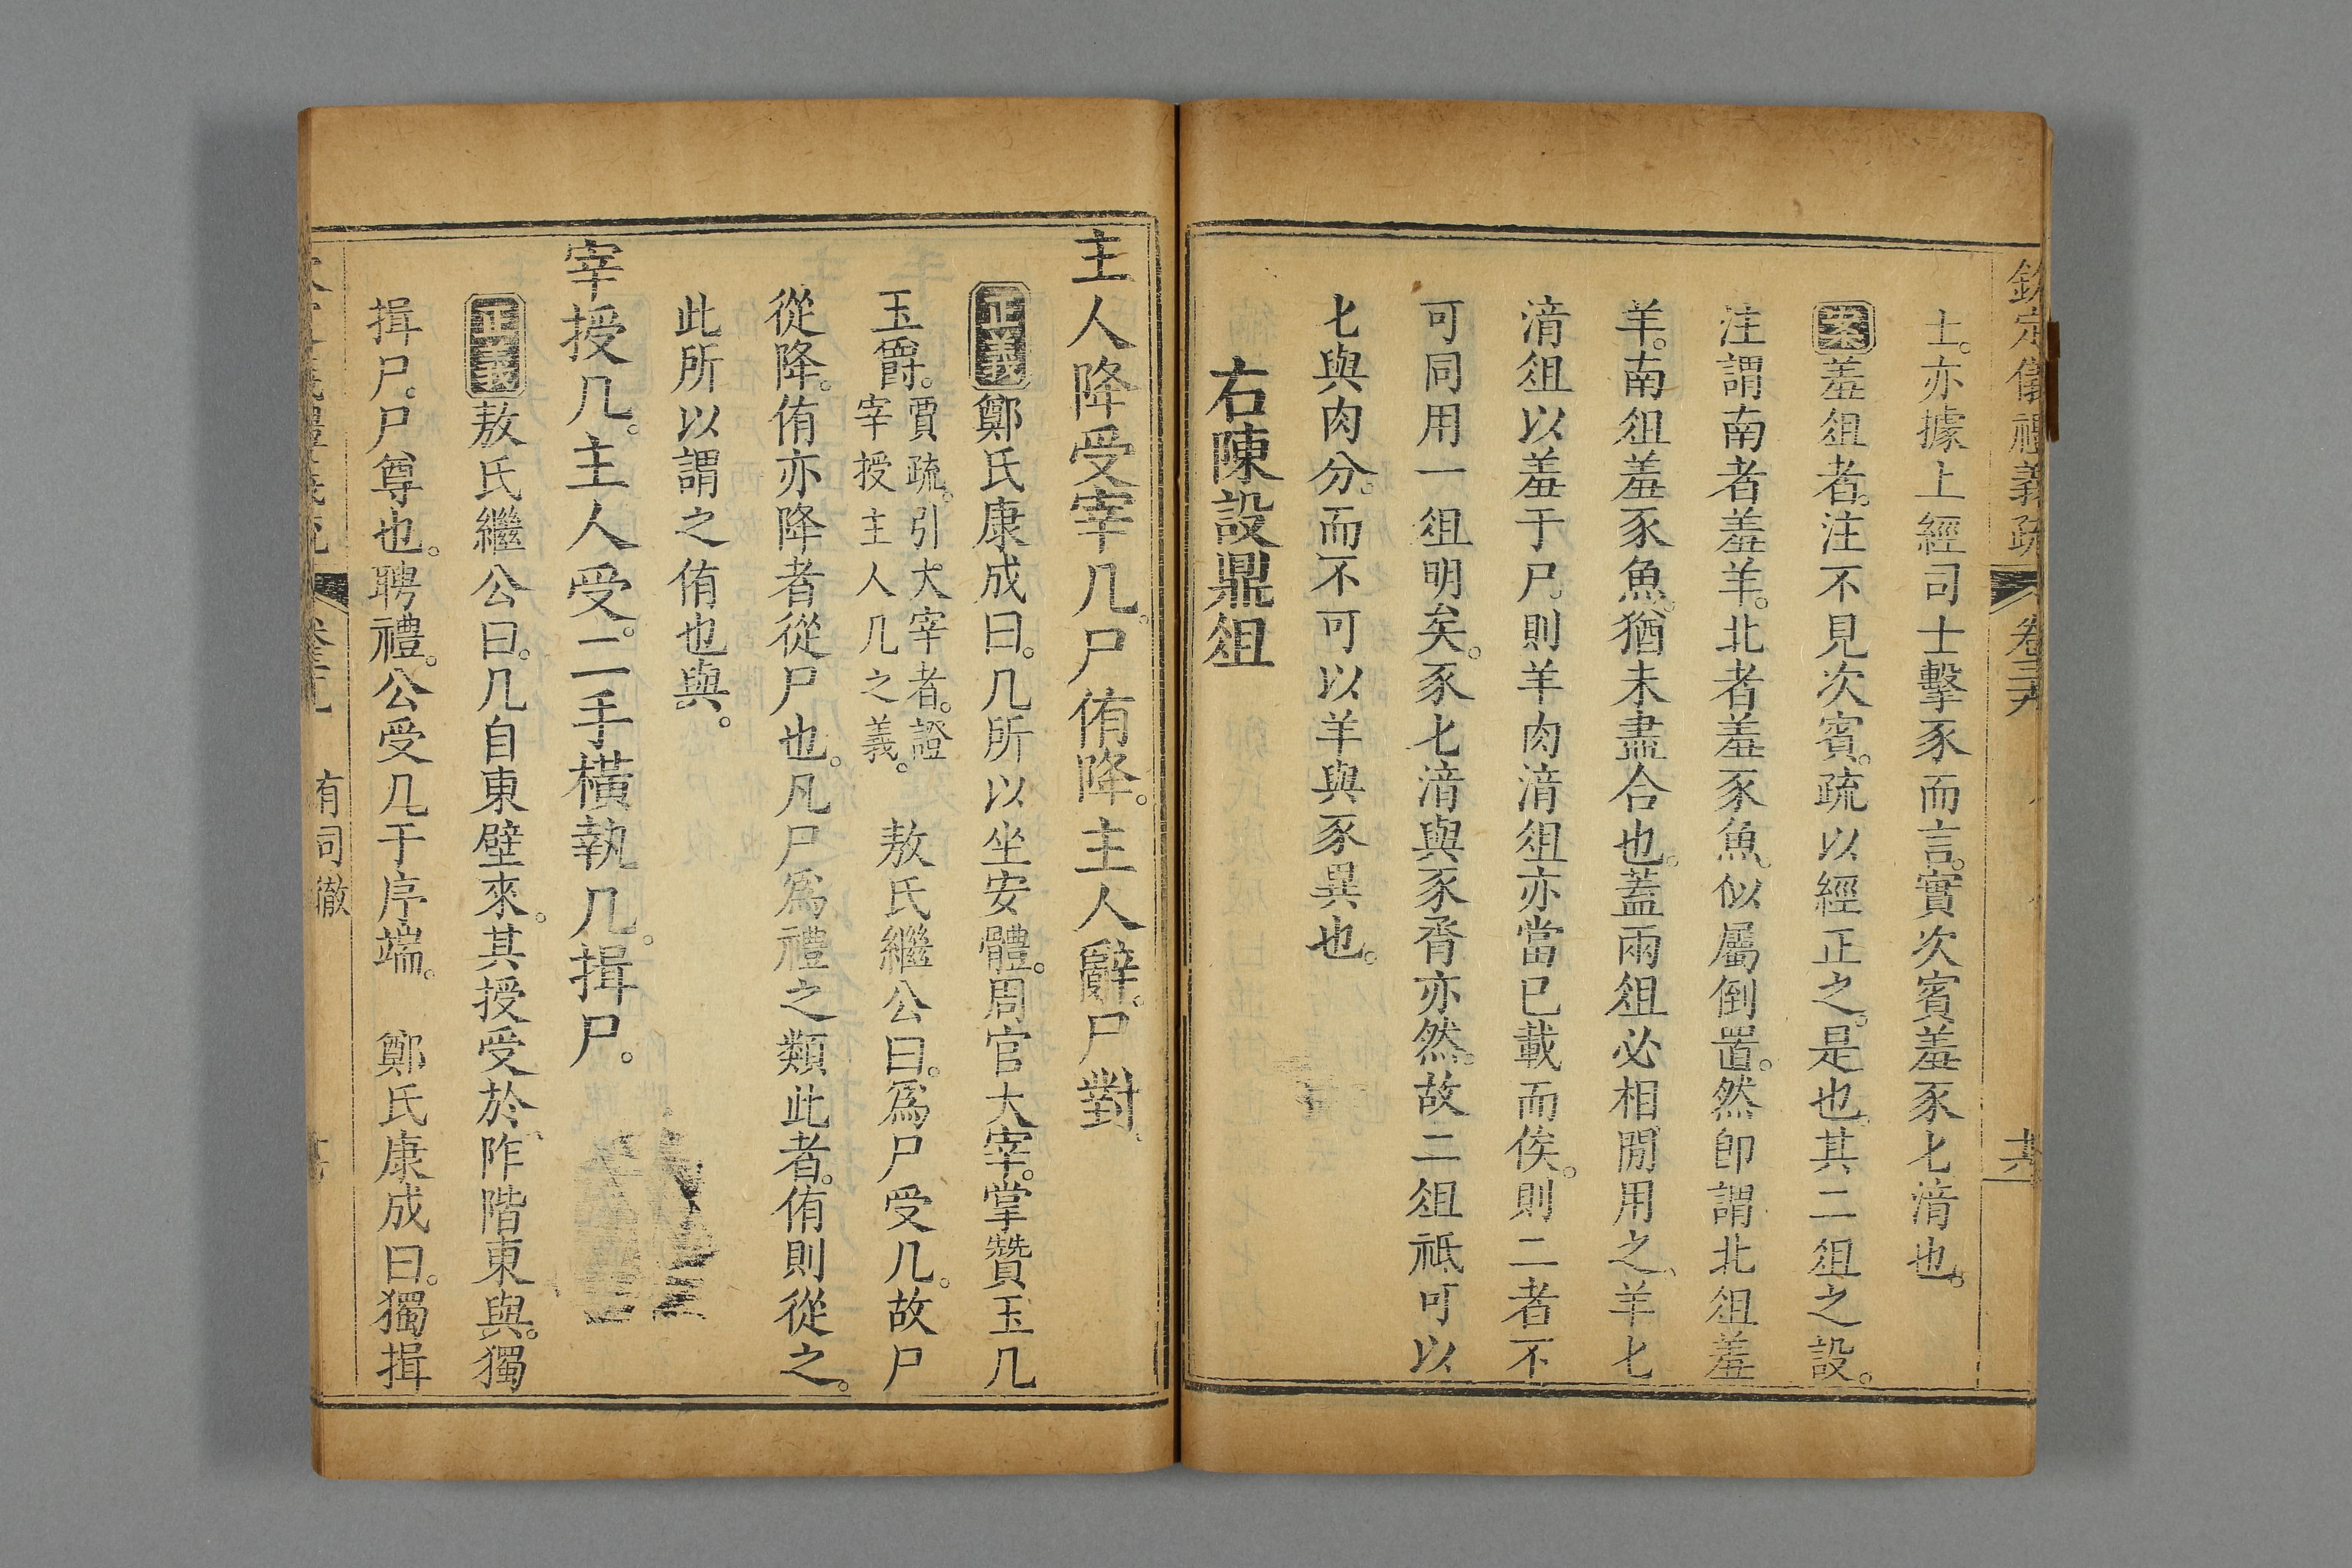 欽定儀禮義疏 卷三十九
士。亦據上經司士擊豕而言。實次賓羞豕匕湆也。
案羞俎者。注不見次賓。疏以經正之。是也。其二俎之設。
注謂南者羞羊。北者羞豕魚。似屬倒置。然卽謂北俎羞
羊。南俎羞豕魚。猶未盡合也。蓋兩俎必相閒用之。羊匕
湆俎以羞于尸。則羊肉湆俎亦當已載而俟。則二者不
可同用一俎明矣。豕匕湆與豕脀亦然。故二俎祗可以
匕與肉分。而不可以羊與豕異也。
右陳設鼎俎
主人降受宰几。尸侑降。主人辭。尸對。
正義鄭氏康成曰。几所以坐安體。周官大宰。掌贊玉几
玉爵。賈疏。引大宰者。證宰授主人几之義。 敖氏繼公曰。爲尸受几。故尸
從降。侑亦降者從尸也。凡尸爲禮之類此者。侑則從之。
此所以謂之侑也與。
宰授几。主人受。二手橫執几。揖尸。
正義敖氏繼公曰。几自東壁來。其授受於阼階東與。獨
揖尸。尸尊也。聘禮。公受几于序端。 鄭氏康成曰。獨揖
有司徹